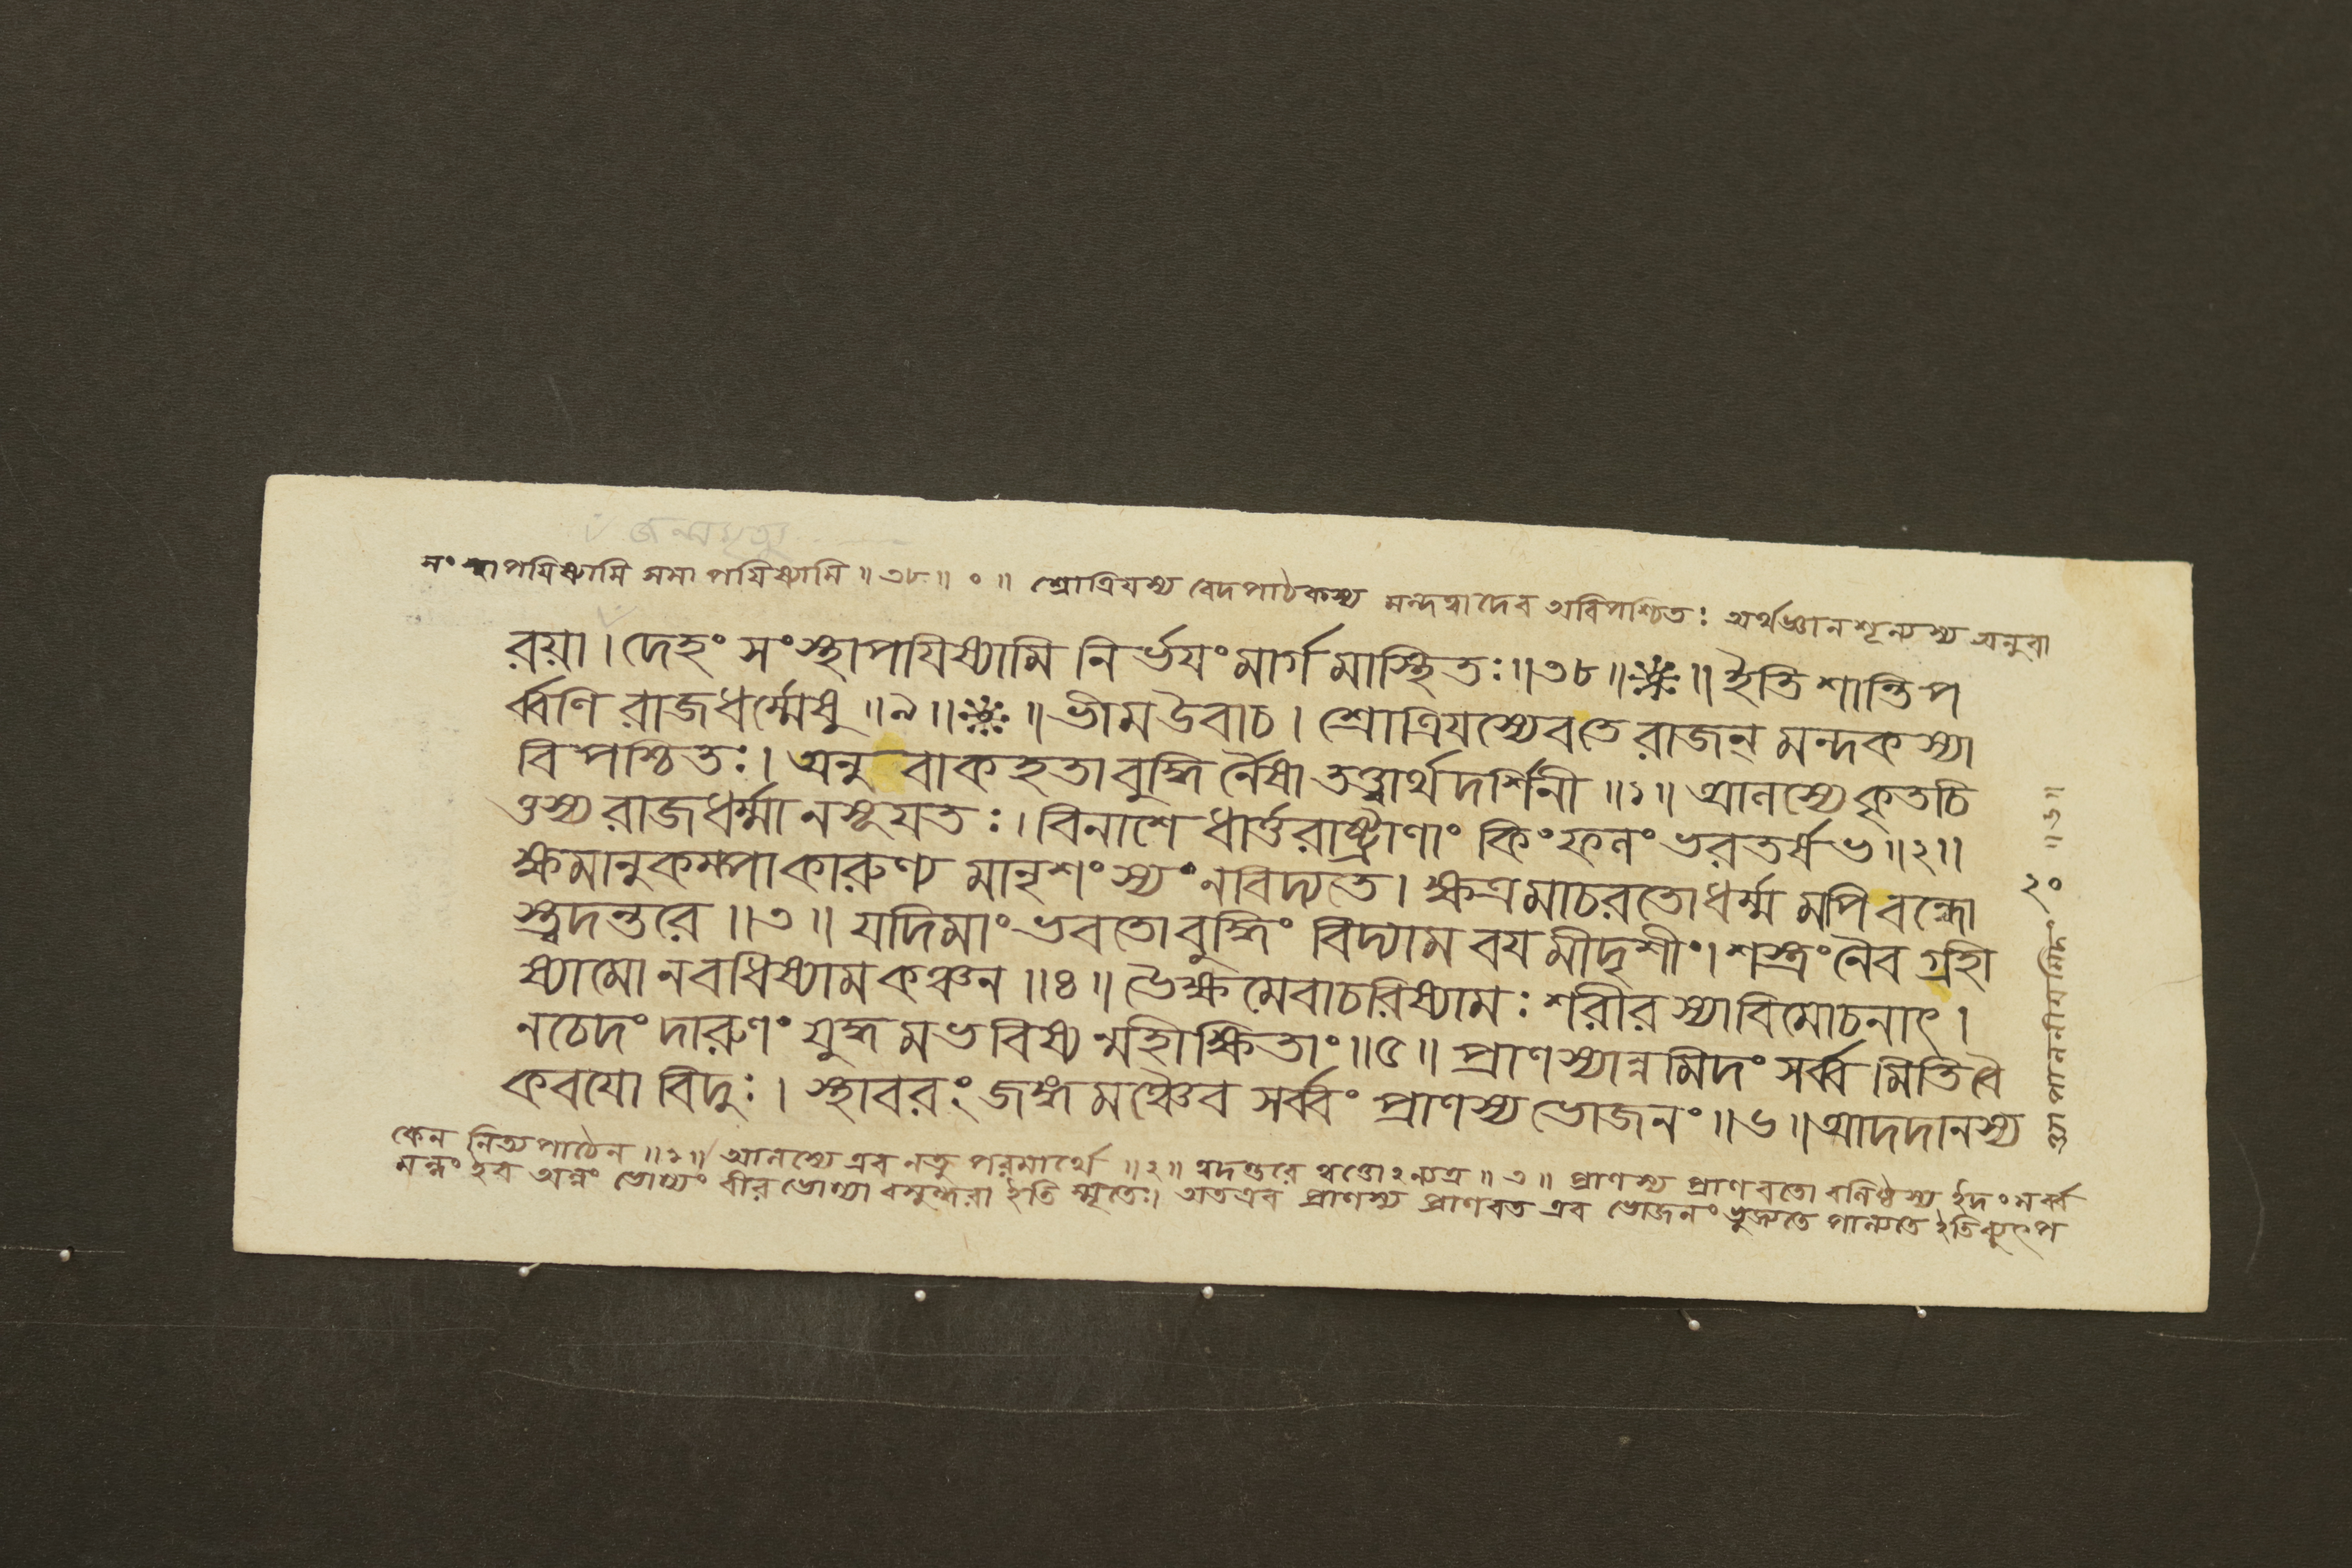 জন্মমৃত্যু
সংস্থাপযিষ্যামি সমাপযিষ্যামি ॥৩৮॥ ০ ॥ শ্রোত্রিযস্য বেদপাঠকস্য মন্দত্বাদেব অবিপশ্চিতঃ অর্থজ্ঞানশূন্যস্য অনুবা
রয়া। দেহং সংস্থাপযিষ্যামি নির্ভযং মার্গমাস্থিতঃ॥৩৮॥※॥ ইতি শান্তিপ
র্ব্বণি রাজধর্ম্মেষু ॥৯॥※॥ ভীমউবাচ। শ্রোত্রিযস্যেবতে রাজন্ মন্দকস্যা
বিপশ্চিতঃ। অনুবাকহতাবুদ্ধির্নৈষা তত্ত্বার্থদর্শিনী ॥১॥ আলস্যেকৃতচি
ত্তস্য রাজধর্ম্মানসূযতঃ। বিনাশে ধার্ত্তরাষ্ট্রাণাং কিংফলং ভরতর্ষভ॥২॥
ক্ষমানুকম্পাকারুণ্য মানৃশংস্যং নবিদ্যতে। ক্ষত্রমাচরতোধর্ম্ম মপি বন্ধো
স্ত্বদন্তরে ॥৩॥ যদিমাং ভবতোবুদ্ধিং বিদ্যাম বযমীদৃশীং। শস্ত্রং নৈব গ্রহী
ষ্যামো নবধিষ্যামকঞ্চন ॥৪॥ ভৈক্ষমেবাচরিষ্যামঃ শরীরস্যাবিমোচনাৎ।
নচেদং দারুণং যুদ্ধমভবিষ্যন্মহীক্ষিতাং॥৫॥ প্রাণস্যান্নমিদং সর্ব্বমিতিবৈ
কবযো বিদুঃ। স্থাবরং জঙ্গমঞ্চৈব সর্ব্বং প্রাণস্য ভোজনং॥৬॥ আদদানস্য
কেন নিত্যপাঠেন ॥১॥ আলস্যে এব নতু পরমার্থে ॥২॥ ত্বদন্তরে ত্বত্তোঽন্যত্র ॥৩॥ প্রাণস্য প্রাণবতো বলিষ্ঠস্য ইদং সর্ব্ব
মন্নং ইব অন্নং ভোগ্যং বীরভোগ্যা বসুন্ধরা ইতি স্মৃতেঃ। অতএব প্রাণস্য প্রাণবত এব ভোজনং ভুজ্যতে পাল্যতে ইতি
পালনীযমিদং ॥৬॥
২০